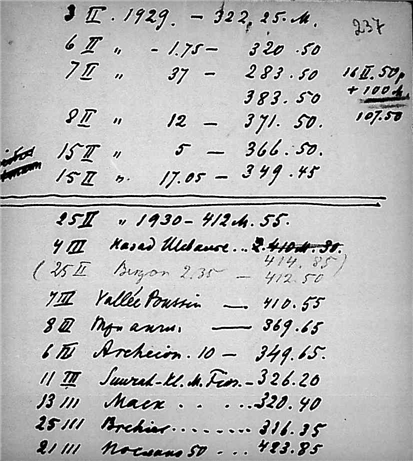 237
3 II. 1929. - 322, 25 м.
6 II " - 1.75 - 320.50
7 II " 37 - 283.50
16 II. 50 р
383.50
+ 100 м
8 II " 12 - 371.50.
107.50
15 II " 5 - 366.50.
15 II ". 17.05 - 349.45
25 II " 1930 - 412 м. 55.
4 III Назад ... 2 410 м. 30.
414.85)
(25 II 2.35 - 412.50
7 III Vallée Poussin - 410.55
8 III - 369.65
6 III Archeion. 10 - 349.65.
11 III - Kl. M. - 326.20
13 III Маск . . . . 320.40
25 III Brehier ........ 316.35
21 III послано 50 ... 423.85